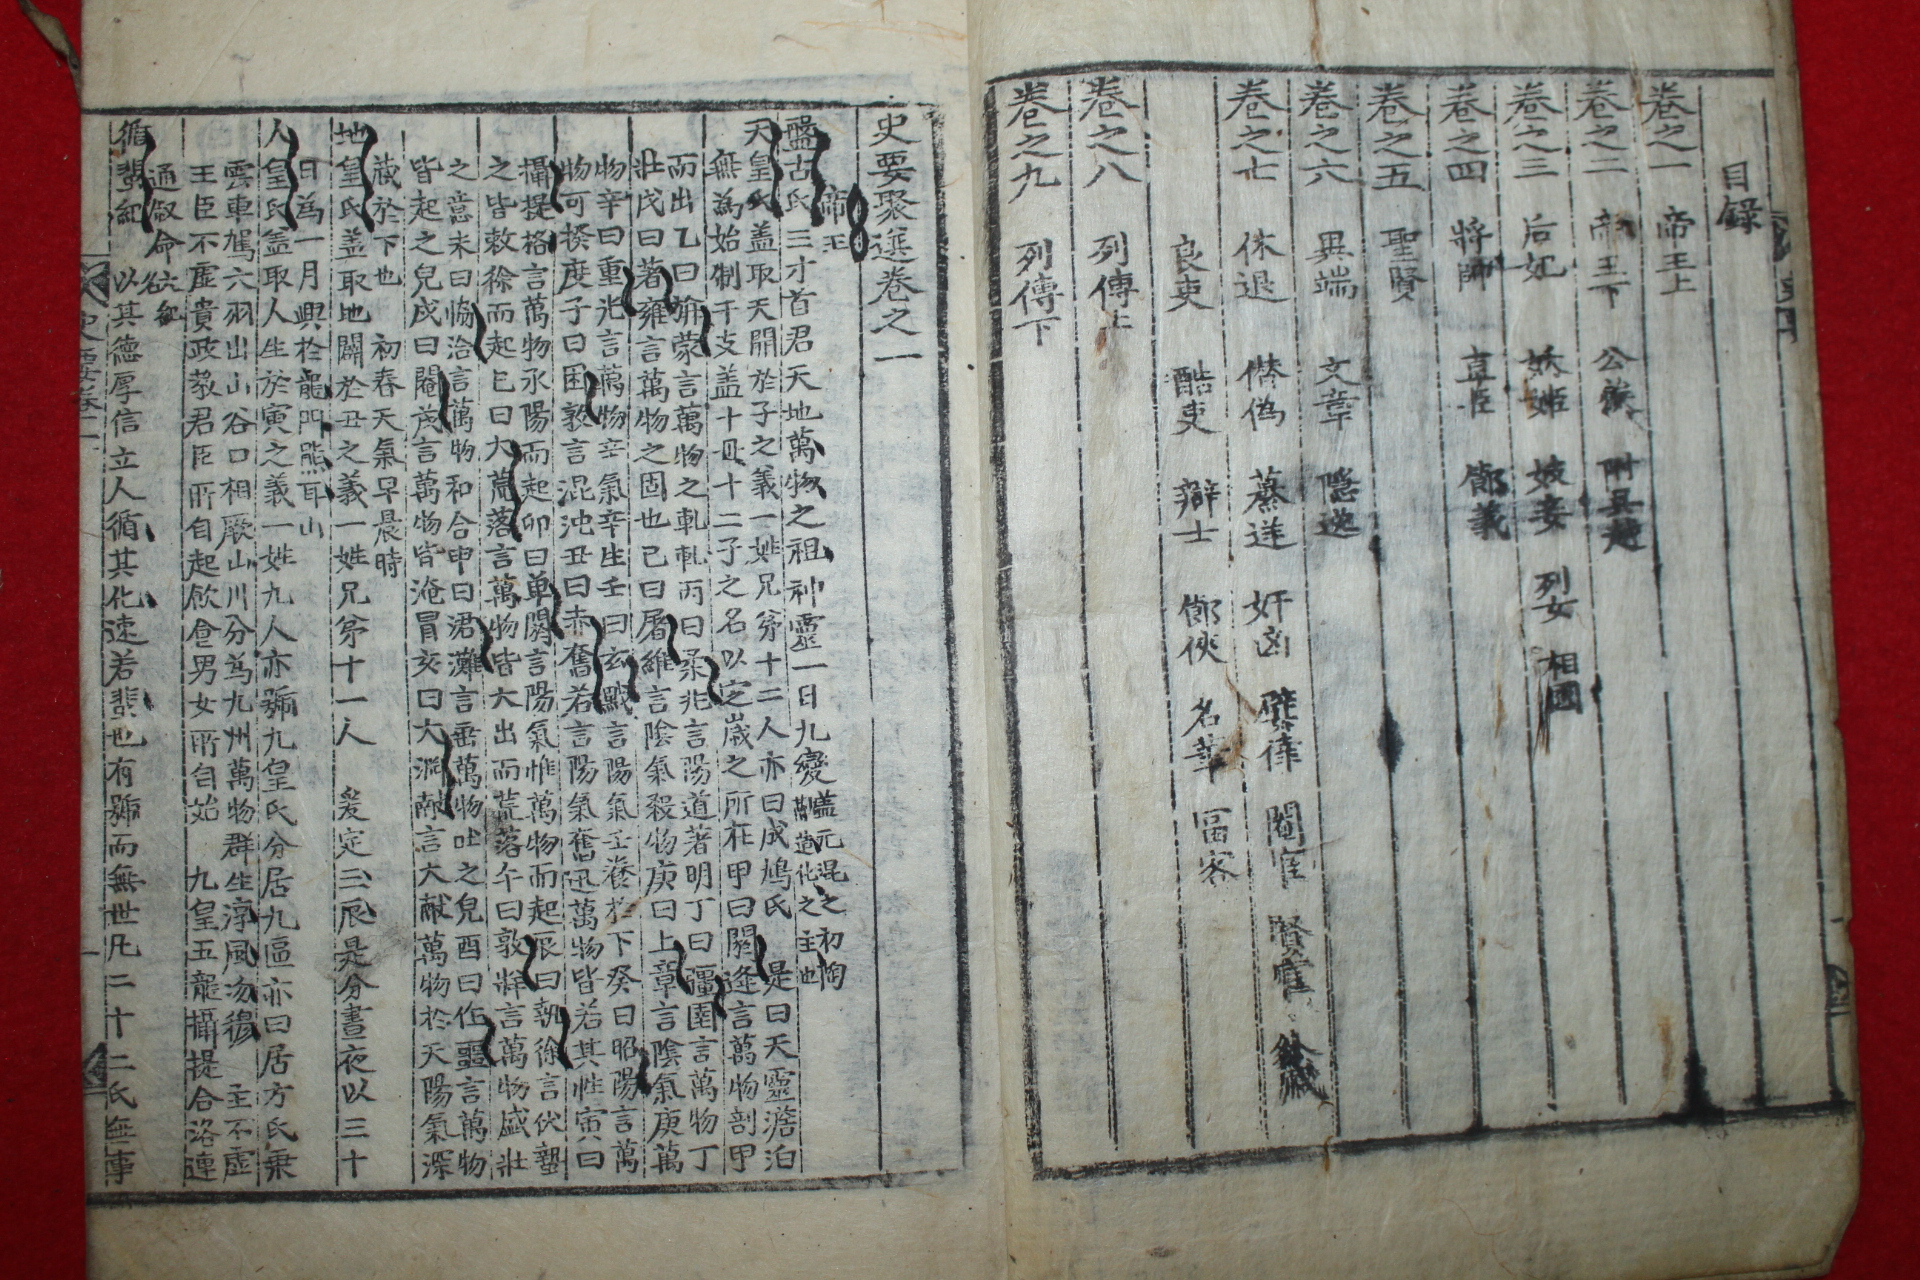 目錄
卷之一 帝王上
卷之二 帝王下 公族 附吳越
卷之三 后妃 妖姬 妓妾 列女 相國
卷之四 將帥 直臣 節義
卷之五 聖賢
卷之六 異端 文章 隱逸
卷之七 休退 僭偽 簒逆 奸凶 嬖倖 閹宦 賢宦
良吏 酷吏 辯士 節俠 名華 富客
卷之八 列傳上
卷之九 列傳下
史要聚選卷之一
帝王
盤古氏三才首君天地萬物之祖神靈一日九變盖元混之初陶
甄造化之主也
天皇氏盖取天開於子之義一姓兄弟十二人亦曰成鳩氏 是曰天靈澹泊
無為始制干支盖十母十二子之名以定歲之所在甲曰閼逢言萬物剖甲
而出乙曰旃蒙言萬物之軋軋丙曰柔兆言陽道著明丁曰彊圉言萬物丁
壯戊曰著雍言萬物之固也己曰屠維言陰氣殺物庚曰上章言陰氣庚萬
物辛曰重光言萬物辛氣辛生壬曰玄黓言陽氣壬養於下癸曰昭陽言萬
物可揆度子曰困敦言混沌丑曰赤奮若言陽氣奮迅萬物皆若其性寅曰
攝提格言萬物承陽而起卯曰單閼言陽氣惟萬物而起辰曰執徐言伏蟄
之皆敕徐而起巳曰大荒落言萬物皆大出而荒落午曰敦牂言萬物盛壯
之意未曰協洽言萬物和合申曰涒灘言垂萬物吐之皃酉曰作噩言萬物
皆起之皃戌曰閹茂言萬物皆淹冒亥曰大淵献言大献萬物於天陽氣深
藏於下也 初春天氣早晨時
地皇氏盖取地闢於丑之義一姓兄弟十一人 爰定三辰是分晝夜以三十
日為一月興於龍門熊耳山
人皇氏盖取人生於寅之義一姓九人亦號九皇氏分居九區亦曰居方氏乗
雲車駕六羽出山谷口相厥山川分爲九州萬物群生淳風沕穆 主不虛
王臣不虛貴政敎君臣所自起飮食男女所自始 九皇五龍攝提合洛連
通叙命六紀
循蜚紀 以其德厚信立人循其化速若蜚也有號而無世凡二十二氏無事